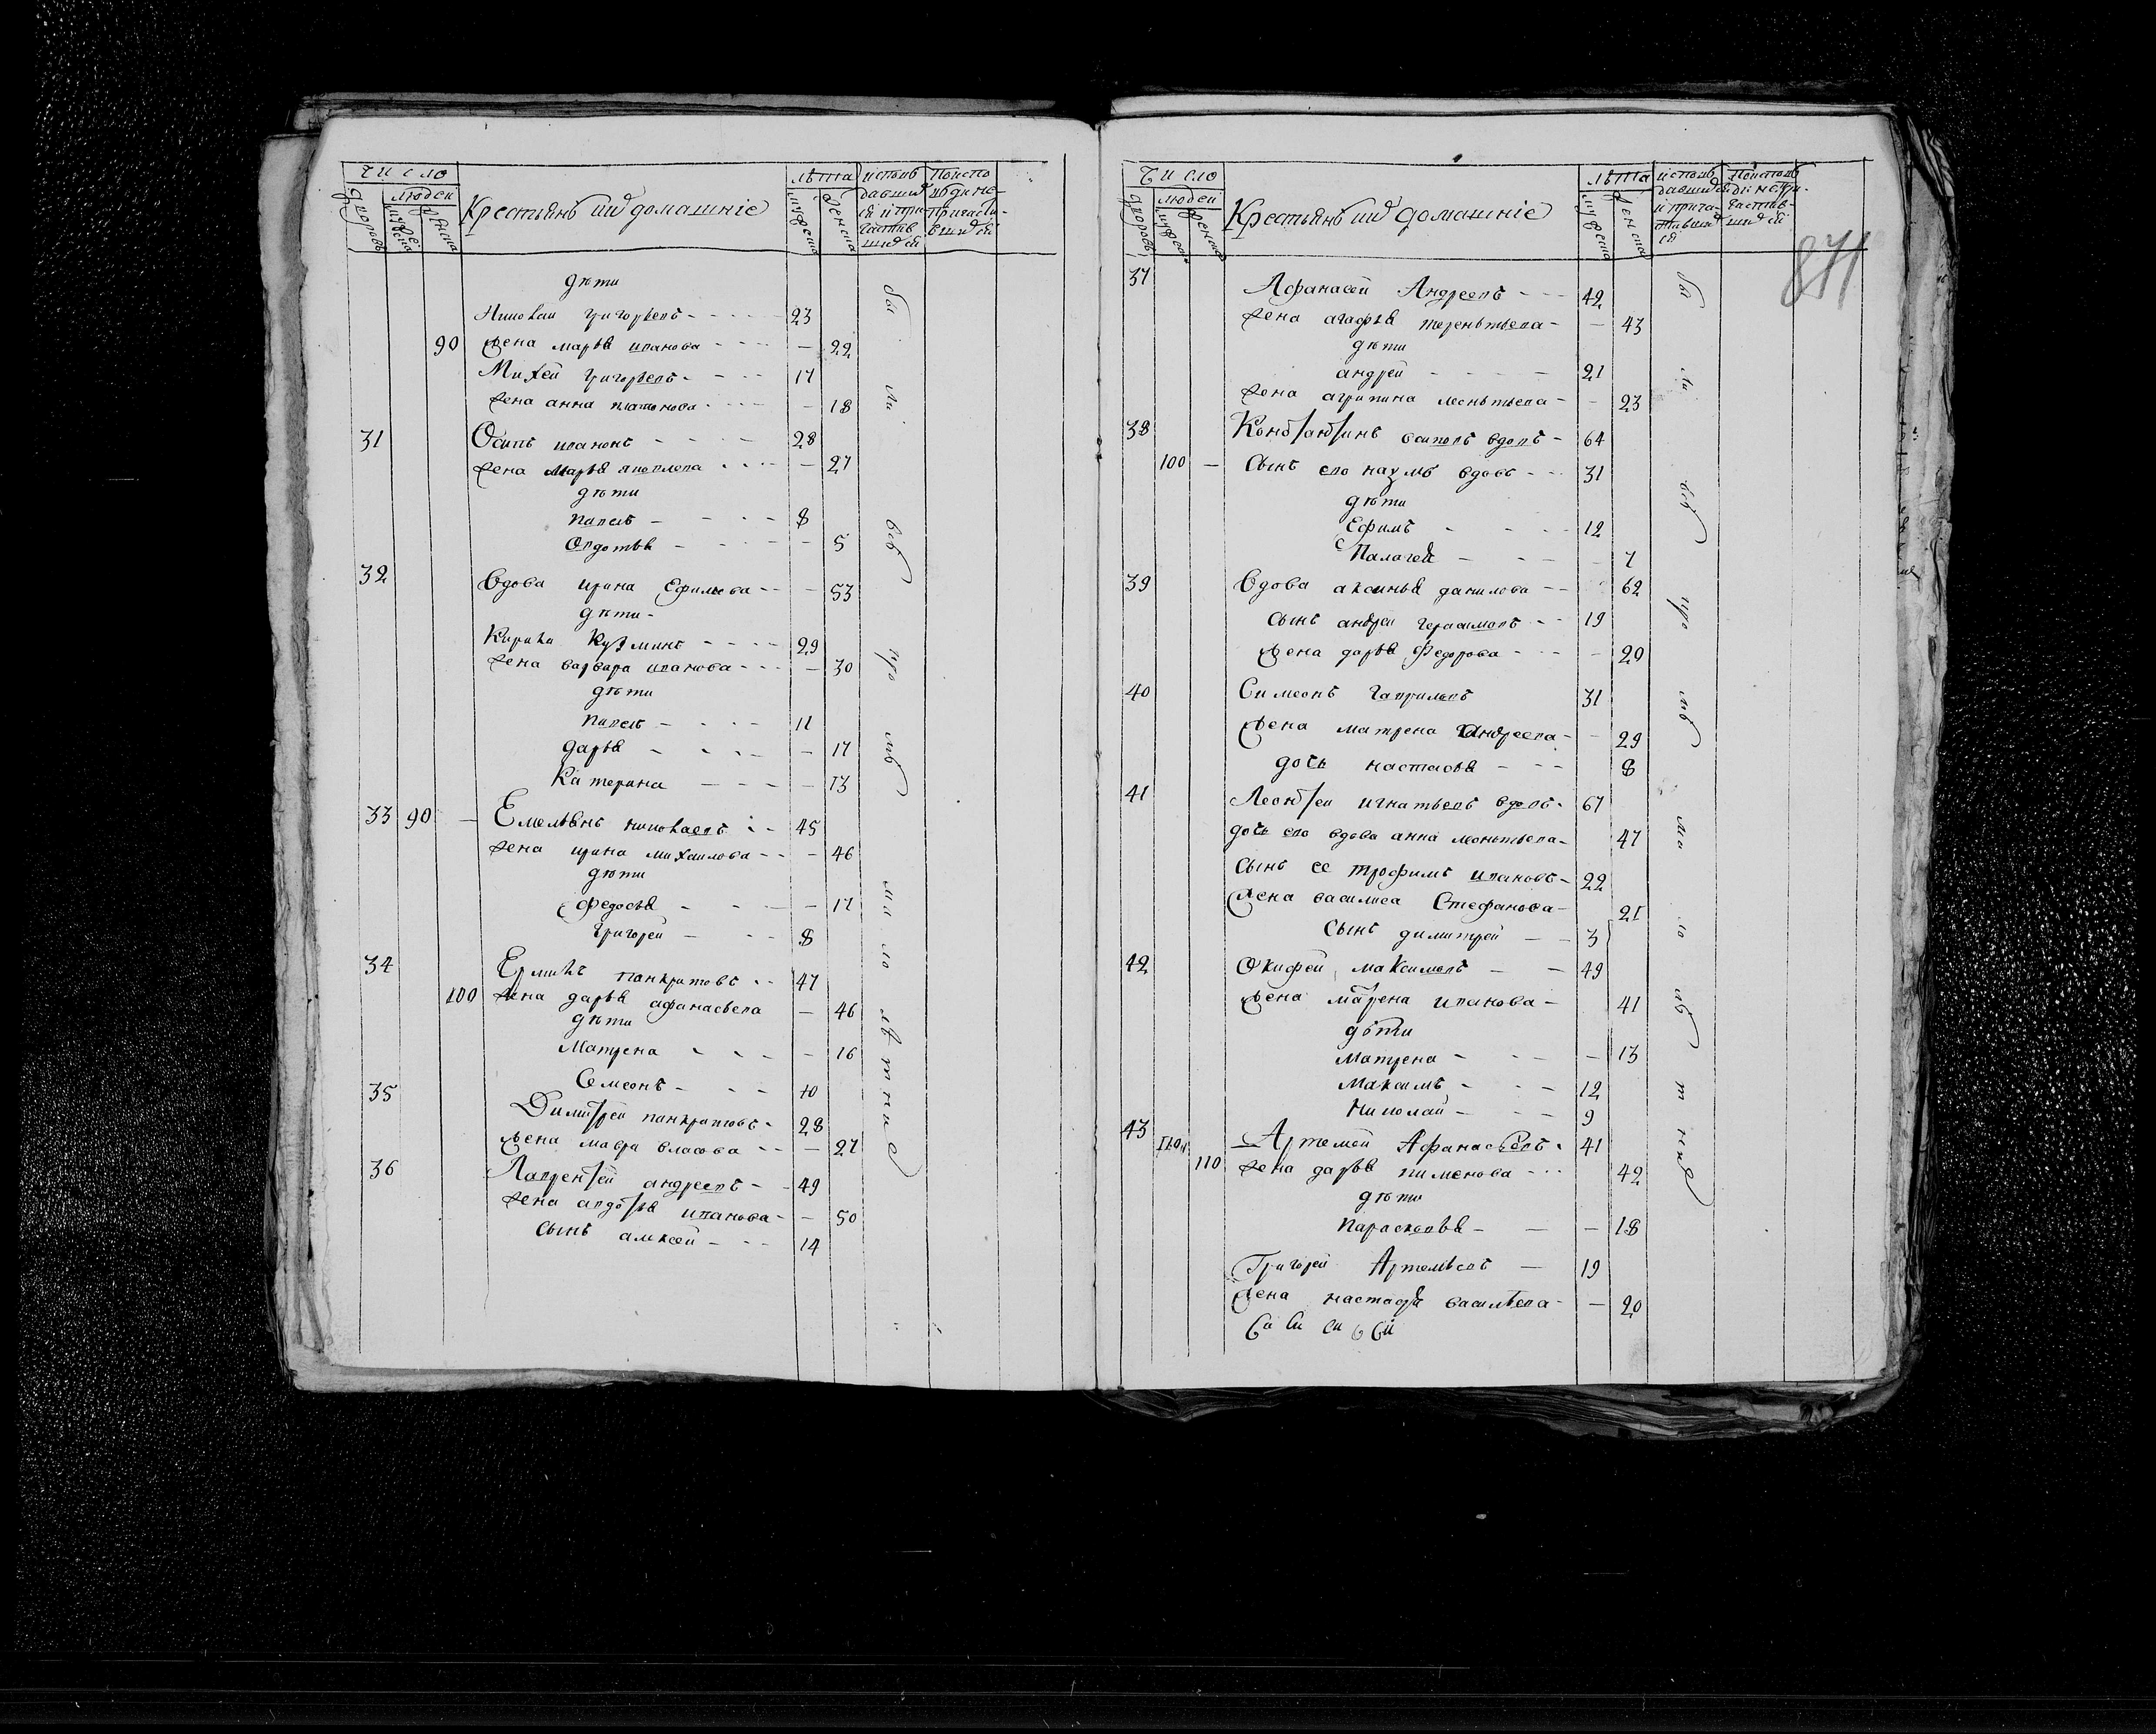 Число
людеи
дворовъ
мужеска
женска
Крестьянѣ ихъ домашніе
лѣта
мужеска
женска
исповѣ
давших
ся и при
частив
шихся
Поиспо
вѣди не
причасти
вшихся
дѣти
Николаи григорьевъ - - - - 23
90 жена марья иванова - - - - 22
Михей григорьевъ - - - 17
жена анна платонова - - - - 18
31 Осипъ ивановъ - - - 28
жена марья яковлева - - - - 27
дѣти
павелъ - - - - 8
Овдотья - - - - - 5
32 вдова ирина Ефимова - - - 53
дѣти -
Кирила Кузминъ - - - - 29
жена варвара иванова - - - - 30
дѣти
павелъ - - - - 11
дарья - - - - - 17
Катерина - - - - 13
33 90 — Емельянъ николаевъ - - 45
жена ирина михаилова - - - 46
дѣти
федосья - - - - 17
григореи - - - 8
34 Ермилъ панкратовъ - - 47
100 жена дарья афанасьева — 46
дѣти
Матрена - - - - 16
Семеонъ - - - 10
35 Димитреи панкратовъ - 28
жена мавра власова - - - 27
36 Лаврентей андреевъ - - 49
жена авдотья иванова - - 50
сынъ алексеи - - - 14
бы
ли
всѣ
при
мѣ
ма
ло
лѣтныхъ
Число
людеи
дворовъ
мужеска
женска
Крестьянѣ ихъ домашніе
лѣта
мужеска
женска
исповѣ
давшихъ
и прича
стивших
ся
Поисповѣ
ди непри-
частив-
шихся
871
37 Афанасеи Андреевъ - - - 42
жена агафья терентьева - - 43
дѣти
андреи - - - - 21
жена агрипина леонтьева - - 23
38 Констянтинъ осиповъ вдовъ - 64
100 — сынъ его наумъ вдовъ - - - 31
дѣти
Ефимъ - - - - 12
Палагея - - - - 7
39 вдова аксинья данилова - - 62
сынъ андреи герасимовъ - - 19
жена дарья федорова - - - - 20
40 Симеонъ гавриловъ 31
жена матрена андреева - - 29
дочь настасья - - - 8
41 Леонтеи игнатьевъ вдовъ - 67
дочь его вдова анна леонтьева - 47
сынъ ее трофимъ ивановъ - 22
жена василиса Стефанова - 21
сынъ димитреи - - 3
42 Окифеи максимовъ - - 49
жена матрена иванова - 41
дѣти
матрена - - - - 13
максимъ - - - 12
николаи - - - 9
43 110 — Артемеи Афанасьевъ - 41
110 жена дарья пименова - - - 42
дѣти
параскевья - — - 18
Григореи Артемьевъ — 19
жена настасья васильева - — 20
бы
ли
всѣ
при